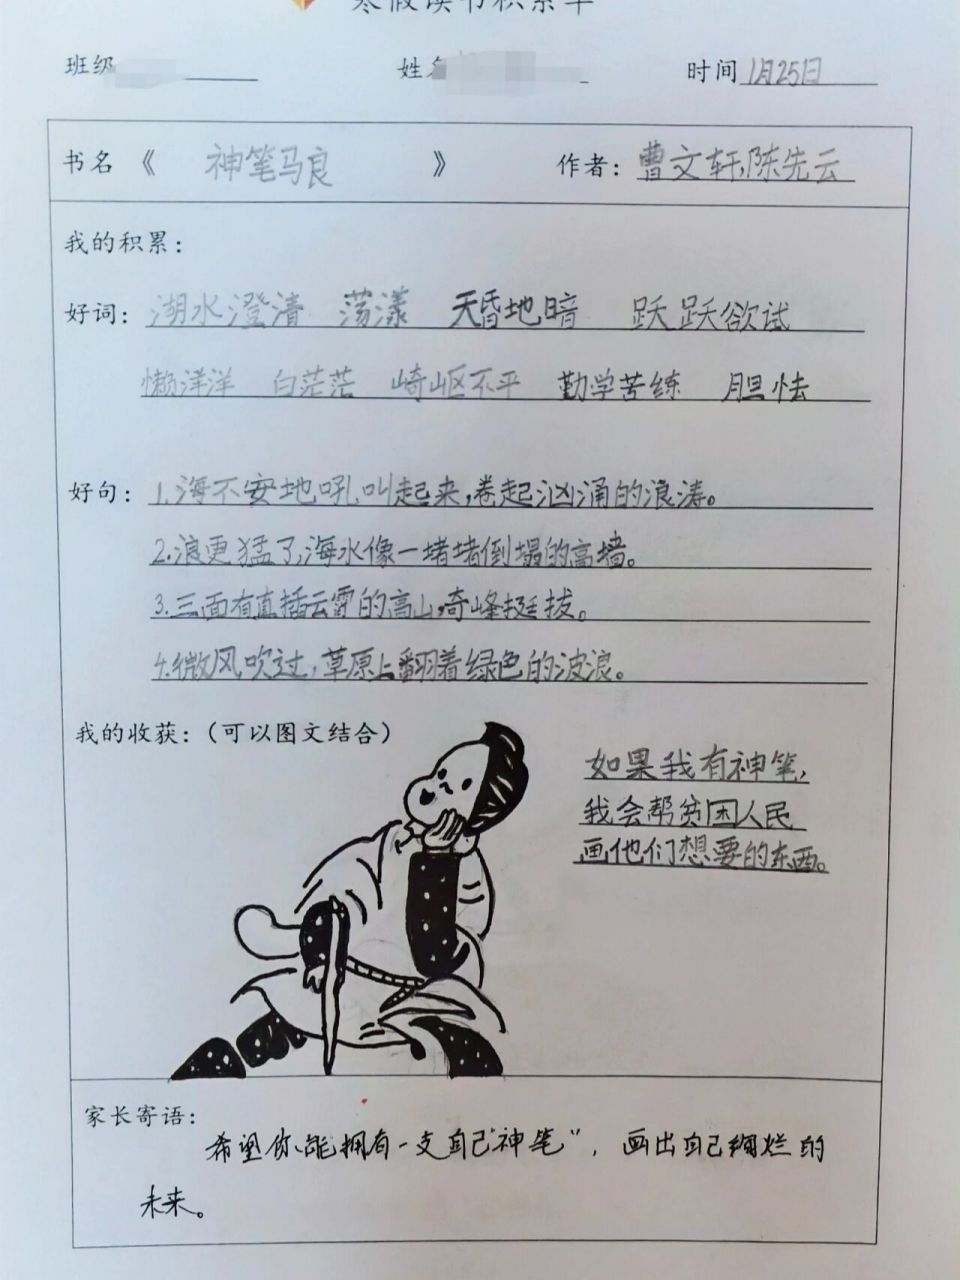 寒假读书积累单
班级 姓名 时间 1月25日
书名《 神笔马良 》 作者：曹文轩,陈先云
我的积累：
好词：湖水澄清 荡漾 天昏地暗 跃跃欲试
懒洋洋 白茫茫 崎岖不平 勤学苦练 胆怯
好句：1.海不安地吼叫起来,卷起汹涌的浪涛。
2.浪更猛了,海水像一堵堵倒塌的高墙。
3.三面有直插云霄的高山,奇峰挺拔。
4.微风吹过,草原上翻着绿色的波浪。
我的收获：（可以图文结合）
如果我有神笔,
我会帮贫困人民
画他们想要的东西。
家长寄语：
希望你能拥有一支自己"神笔"，画出自己绚烂的
未来。